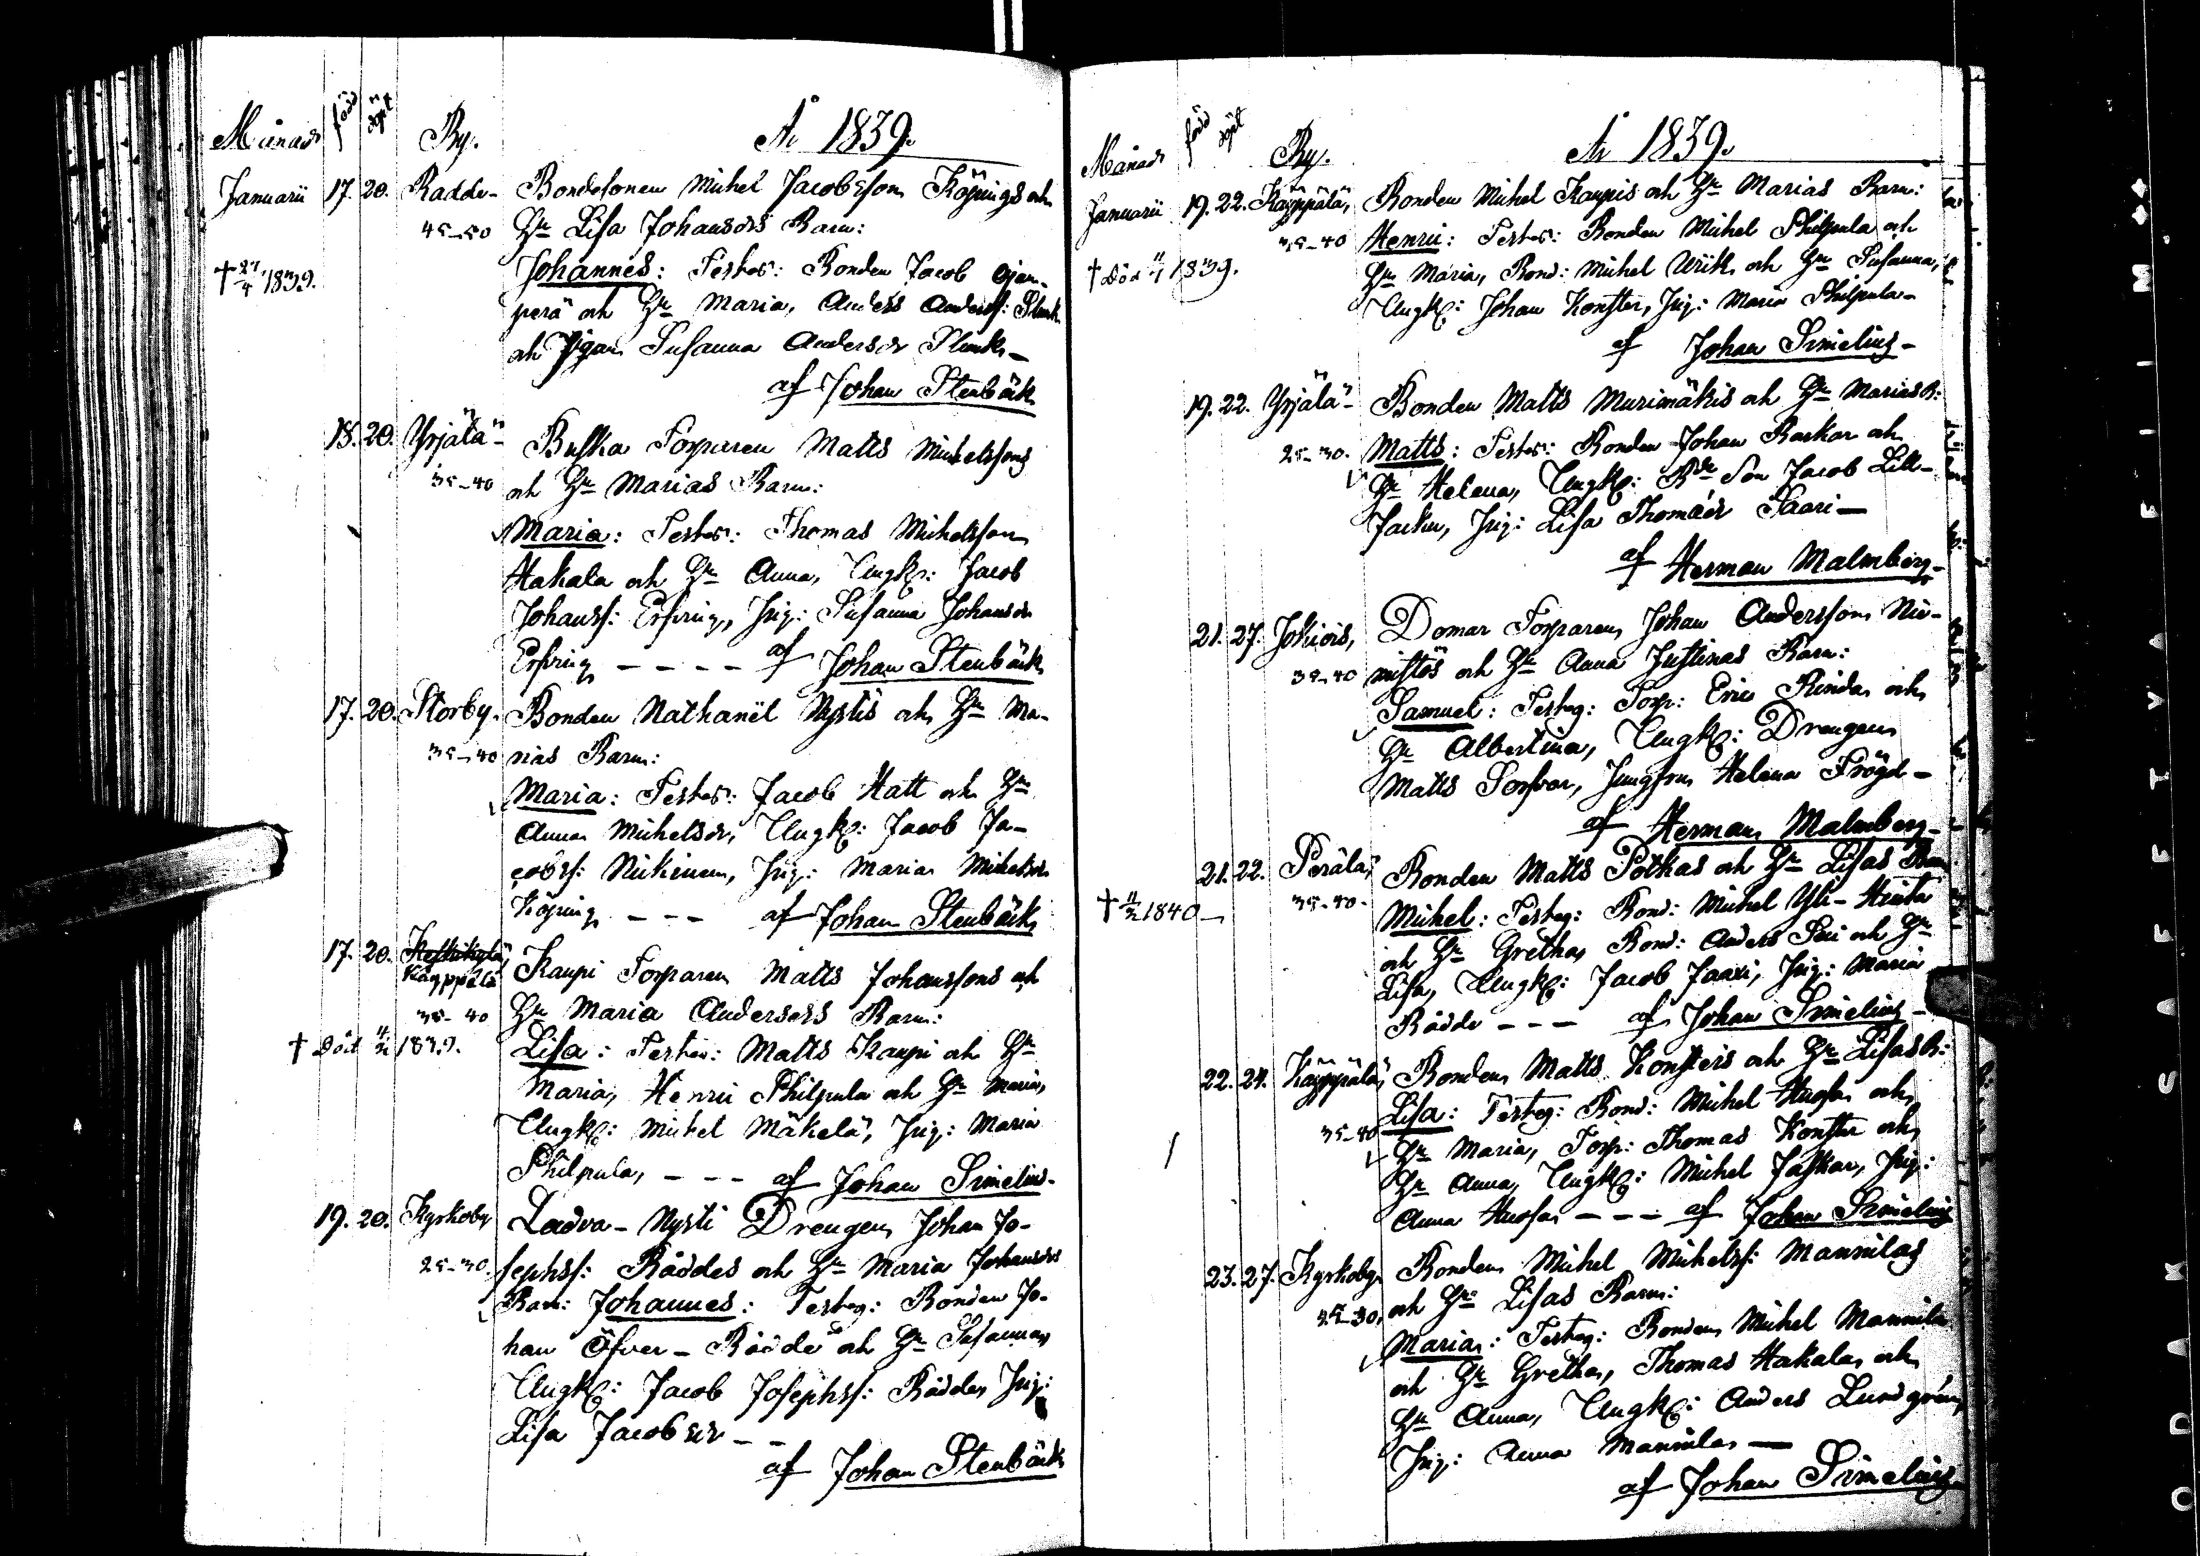 Månad född döpt By. År 1839.
Januarii 17. 20. Radde- Bondesonen Michel Jacobsson Köpings och
45-50 Hu Lisa Johansdrs Barn:
Johannes: Testes: Bonden Jacob Ojan-
† 27/4 1839.
perä och Hu Maria, Anders Anderss: Plunk
och Pigan Susanna Andersdr Plunk-
af Johan Stenbäck
18. 20. Yrjälä- Buska Torparen Matts Michelssons
35-40 och Hu Marias Barn:
Maria: Testes: Thomas Michelsson
Hakala och Hu Anna, Ungk: Jacob
Johanss: Erfving, Jng: Susanna Johansdr
Erfving - - - - af Johan Stenbäck
17. 20. Storby. Bonden Nathanël Nystis och Hu Ma-
35-40 rias Barn:
Maria: Testes: Jacob Hatt och Hu
Anna Michelsdr, Ungk: Jacob Ja-
cobss: Nikinen, Jng: Maria Michelsdr
Köping - - - af Johan Stenbäck
17. 20. Keskikylä
Käyppälä Kaupi Torparen Matts Johanssons och
35-40 Hu Maria Andersdrs Barn:
† Död 11/2 1839. Lisa: Testes: Matts Kaupi och Hu
Maria, Henric Philpula och Hu Maria,
Ungk: Michel Mäkelä, Jng: Maria
Philpula, - - - af Johan Simelius-
19. 20. Kyrkoby Ladva-Nysti Drengen Johan Jo-
25-30. sephss: Räddes och Hu Maria Johansdrs
Barn: Johannes: Testeg: Bonden Jo-
han Öfver-Rädde och Hu Susanna,
Ungk: Jacob Josephss: Rädde, Jng:
Lisa Jacobsdr - -
af Johan Stenbäck
Månad född döpt By. År 1839.
Januarii 19. 22. Käyppälä, Bonden Michel Kaupis och Hu Marias Barn:
35-40 Henric: Testes: Bonden Michel Philpula och
† Död 11/1 1839. Hu Maria, Bond: Michel Wirk och Hu Susanna,
Ungk: Johan Konster, Jng: Maria Philpula-
af Johan Simelius-
19. 22. Yrjälä- Bonden Matts Murimäkis och Hu Marias B:
25-30. Matts: Testes: Bonden Johan Raskar och
Hu Helena, Ungk: Bde Son Jacob Lill-
Jacku, Jng: Lisa Thomædr Saari-
af Herman Malmberg-
21. 27. Jokiois, Domar Torparen Johan Andersson Nie-
35-40 mistös och Hu Anna Justinas Barn:
Samuel: Testeg: Torp: Eric Rinda och
Hu Albertina, Ungk: Drengen
Matts Sorfvar, Jungfru Helena Frögd-
af Herman Malmberg-
21. 22. Perälä, Bonden Matts Potkas och Hu Lisas Barn
† 11/2 1840- 35-40- Michel: Testeg: Bond: Michel Yli-Hinta
och Hu Gretha, Bond: Anders Piri och Hu
Lisa, Ungk: Jacob Jaaxi, Jng: Maria
Rädde - - - af Johan Simelius-
22. 24. Käyppälä, Bonden Matts Konsteis och Hu Lisas B:
35-40 Lisa: Testeg: Bond: Michel Huosa och
Hu Maria, Torp: Thomas Konster och
Hu Anna, Ungk: Michel Jaskar, Jng:
Anna Huosa - - - af Johan Simelius
23. 27. Kyrkoby Bonden Michel Michelss: Mannilas
25-30, och Hu Lisas Barn:
Maria: Testeg: Bonden Michel Mannila
och Hu Gretha, Thomas Hakala, och
Hu Anna, Ungk: Anders Lundgrén,
Jng: Anna Mannila -
af Johan Simelius
KODAK SAFETY FILM